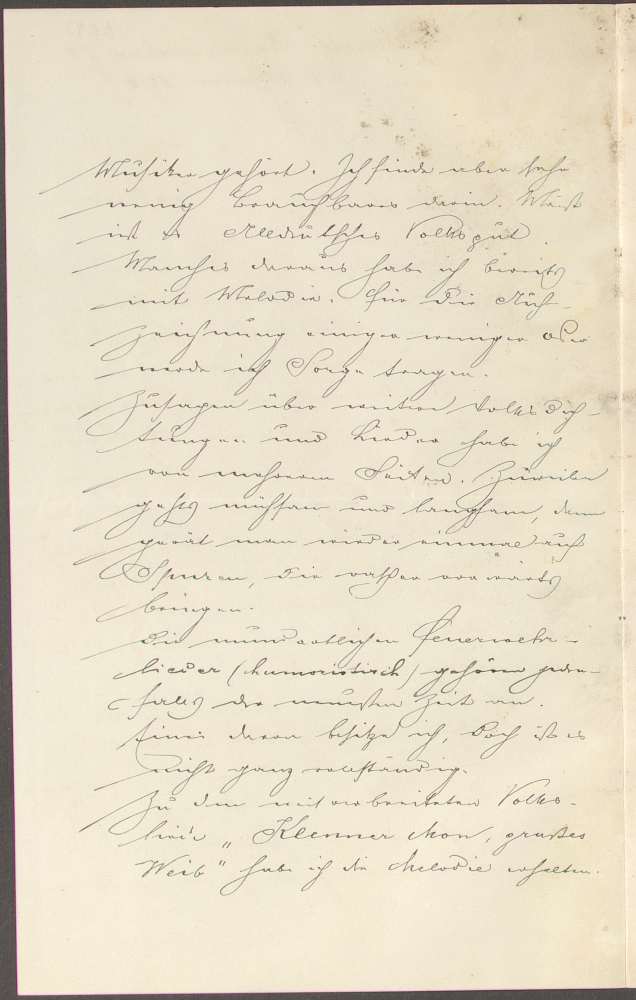 Musiker gehört. Ich finde aber sehr
wenig Brauchbares darin. Meist
ist es Alldeutsches Volksgut.
Manches daraus habe ich bereits
mit Melodie. Für die Auf-
zeichnung einiger weniger
werde ich Sorge tragen.
Zusagen über weitere Volksdich-
tungen und Lieder habe ich
von mehreren Seiten. Zuweilen
gehts mühsam und langsam, dann
gerät man wieder einmal auf
Spuren, die rascher vorwärts
bringen.
Die mundartlichen Feuerwehr-
lieder (humoristisch) gehören jeden-
falls der neuesten Zeit an.
Eines davon besitze ich, doch ist es
nicht ganz vollständig.
Zu dem weitverbreiteten Volks-
liede „Klenner Mon, grußes
Weib" habe ich die Melodie erhalten.